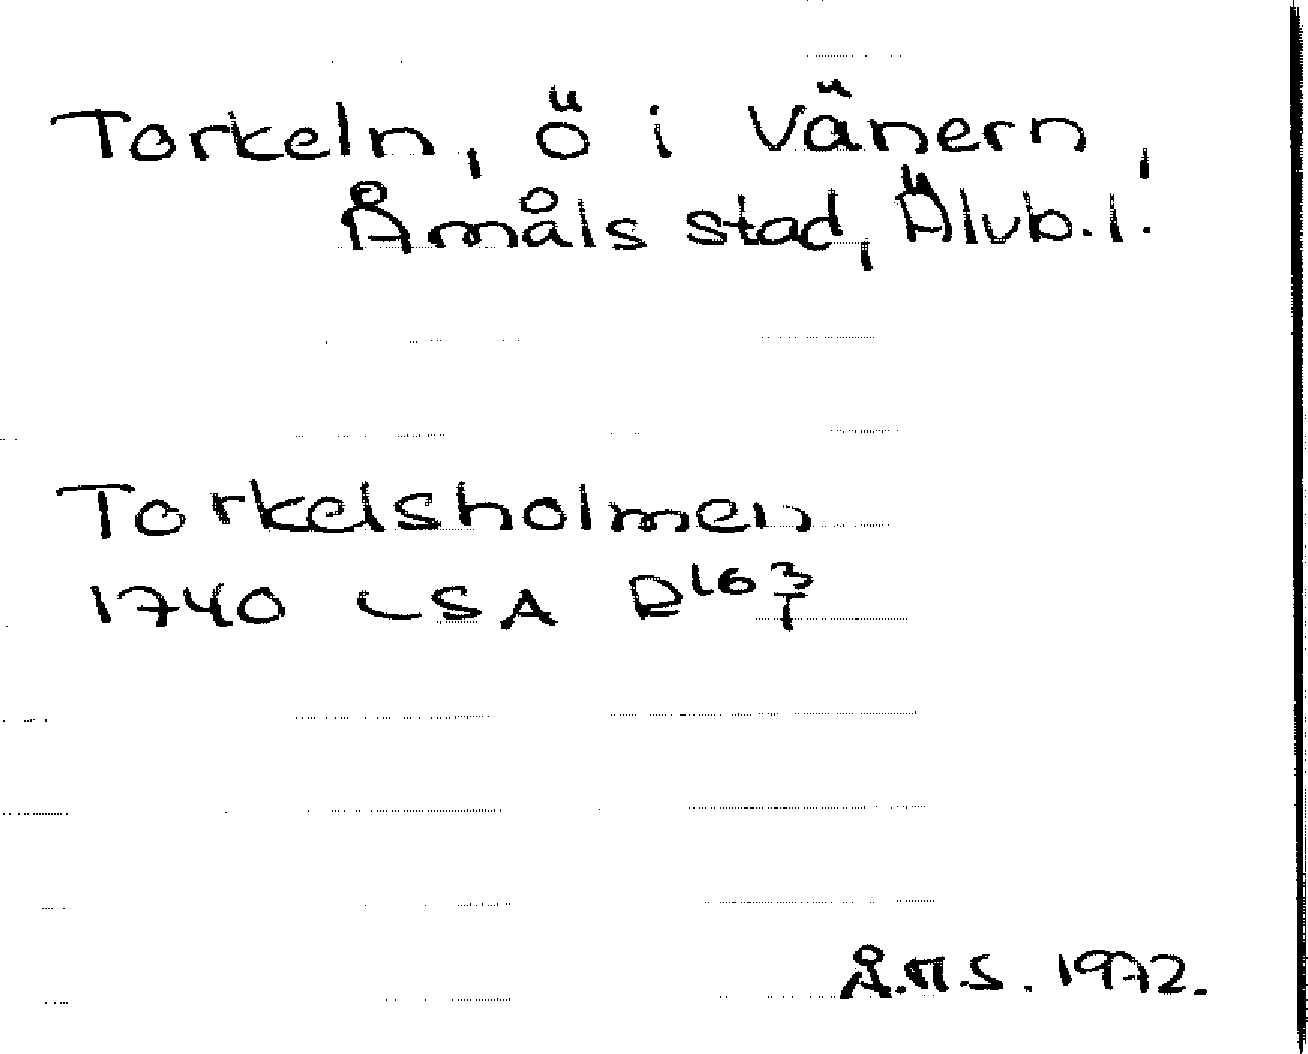 Torkeln, ö i Vänern,
Åmåls stad, Älvb. l.
Torkelsholmen
1740 LSA R16 3/1
Å.M.S. 1972.